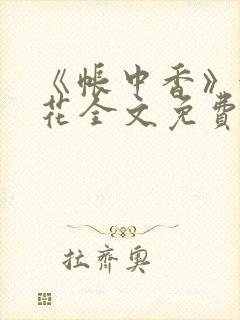 《帐中香》
花全文免费
拉齐奥